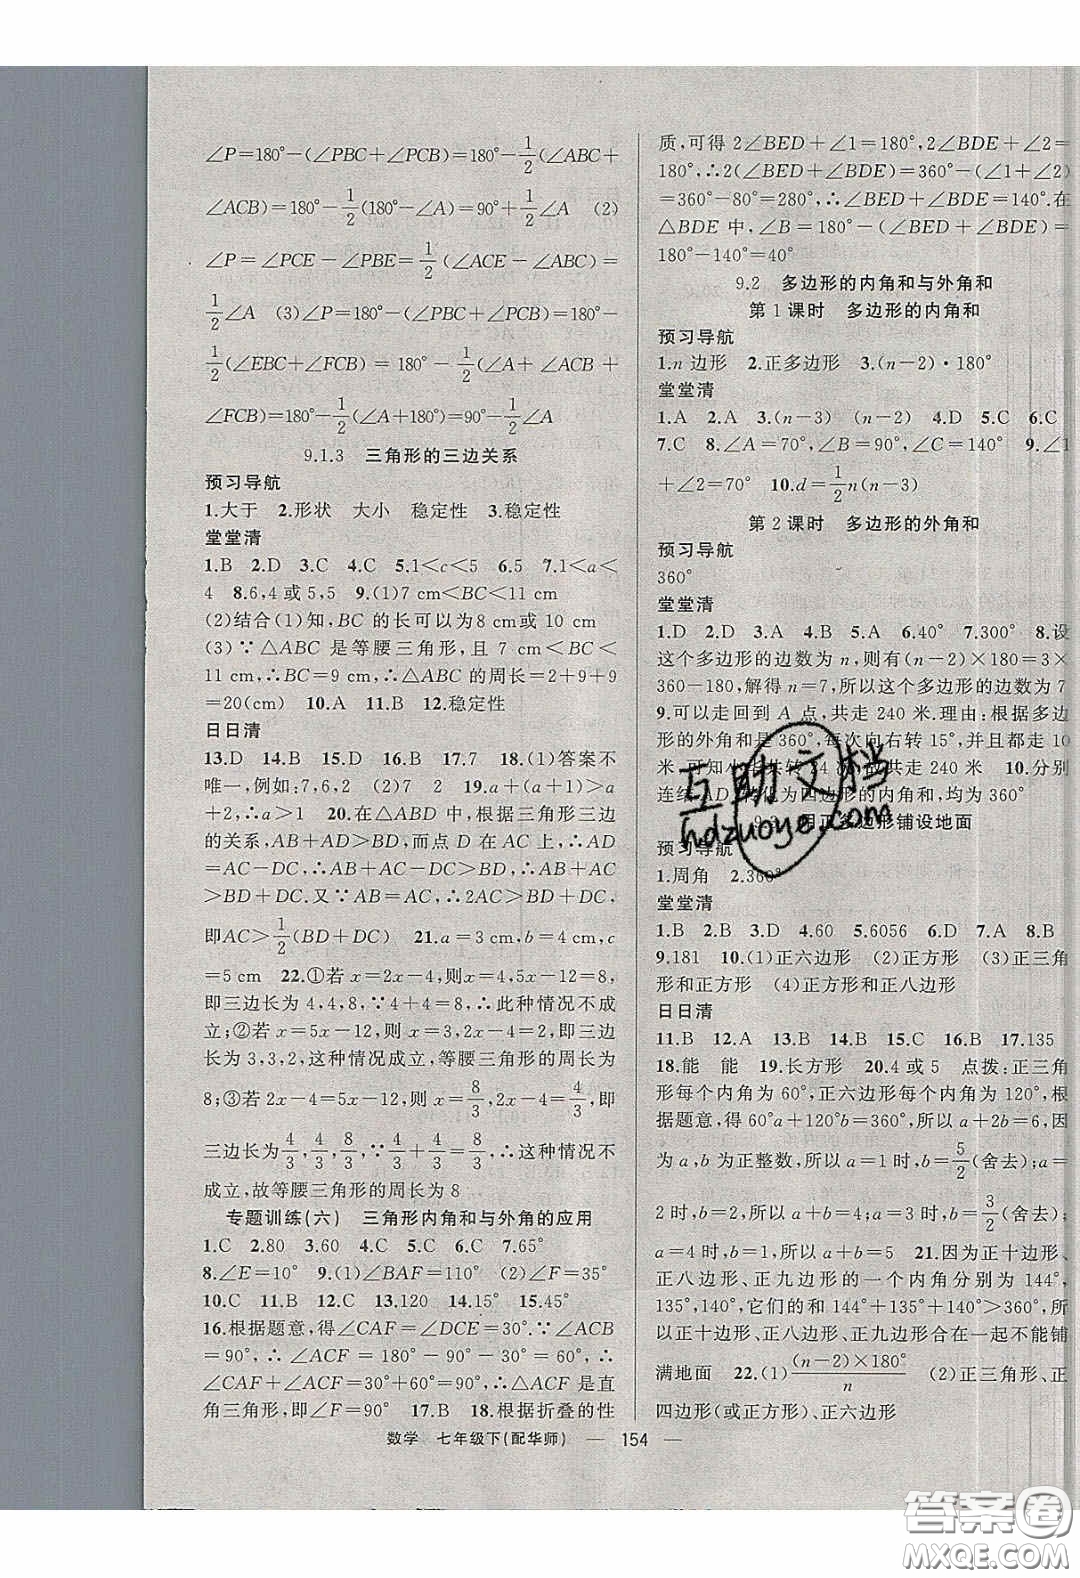 ∠P=180°-(∠PBC+∠PCB)=180°-1/2(∠ABC+
∠ACB)=180°-1/2(180°-∠A)=90°+1/2∠A (2)
∠P=∠PCE-∠PBE=1/2(∠ACE-∠ABC)=
1/2∠A (3)∠P=180°-(∠PBC+∠PCB)=180°-
1/2(∠EBC+∠FCB)=180°-1/2(∠A+∠ACB+
∠FCB)=180°-1/2(∠A+180°)=90°-1/2∠A
9.1.3 三角形的三边关系
预习导航
1.大于 2.形状 大小 稳定性 3.稳定性
堂堂清
1.B 2.D 3.C 4.C 5.1<c<5 6.5 7.1<a<
4 8.6,4或5,5 9.(1)7 cm<BC<11 cm
(2)结合(1)知,BC的长可以为8 cm或10 cm
(3)∵△ABC是等腰三角形,且7 cm<BC<
11 cm,∴BC=9 cm,∴△ABC的周长=2+9+9
=20(cm) 10.A 11.B 12.稳定性
日日清
13.D 14.B 15.D 16.B 17.7 18.(1)答案不
唯一,例如;7,6,2 (2)7 2 19.a+(a+1)>a
+2,∴a>1 20.在△ABD中,根据三角形三边
的关系,AB+AD>BD,而点D在AC上,∴AD
=AC-DC,∴AB+AC-DC>BD,∴AB+AC
>BD+DC.又∵AB=AC,∴2AC>BD+DC,
即AC>1/2(BD+DC) 21.a=3 cm,b=4 cm,c
=5 cm 22.①若x=2x-4,则x=4,5x-12=8,
即三边长为4,4,8,∵4+4=8,∴此种情况不成
立;②若x=5x-12,则x=3,2x-4=2,即三边长为
3,3,2,这种情况成立,等腰三角形的周长为
8;③若2x-4=5x-12,则x=8/3,2x-4=4/3,即
三边长为4/3,4/3,8/3,∵4/3+4/3=8/3,∴这种情况不
成立,故等腰三角形的周长为8
专题训练(六) 三角形内角和与外角的应用
1.C 2.80 3.60 4.A 5.C 6.C 7.65°
8.∠E=10° 9.(1)∠BAF=110° (2)∠F=35°
10.C 11.B 12.C 13.120 14.15° 15.45°
16.根据题意,得∠CAF=∠DCE=30°.∵∠ACB
=90°,∴∠ACF=180°-90°-30°=60°,∴
∠CAF+∠ACF=30°+60°=90°,∴△ACF是直
角三角形,∴∠F=90° 17.B 18.根据折叠的性
质,可得2∠BED+∠1=180°,2∠BDE+∠2=
180°,∴2(∠BED+∠BDE)=360°-(∠1+∠2)
=360°-80°=280°,∴∠BED+∠BDE=140°.在
△BDE中,∠B=180°-(∠BED+∠BDE)=
180°-140°=40°
9.2 多边形的内角和与外角和
第1课时 多边形的内角和
预习导航
1.n边形 2.正多边形 3.(n-2)·180°
堂堂清
1.A 2.A 3.(n-3) (n-2) 4.D 5.C 6.C
7.C 8.∠A=70°,∠B=90°,∠C=140° 9.∠1
+∠2=70° 10.d=1/2n(n-3)
第2课时 多边形的外角和
预习导航
360°
堂堂清
1.D 2.D 3.A 4.B 5.A 6.40° 7.300° 8.设
这个多边形的边数为n,则有(n-2)×180=3×
360-180,解得n=7,所以这个多边形的边数为7
9.可以走回到A点,共走240米.理由:根据多边
形的外角和是360°,每次向右转15°,并且都走10
米,可知小共转24次,故共走240米 10.分别
连结AD,转化为四边形的内角和,均为360°
9.3 用正多边形铺设地面
预习导航
1.周角 2.360°
堂堂清
1.B 2.B 3.D 4.60 5.6056 6.D 7.A 8.B
9.181 10.(1)正六边形 (2)正方形 (3)正三角
形和正方形 (4)正方形和正八边形
日日清
11.B 12.A 13.B 14.B 15.C 16.B 17.135
18.能 能 19.长方形 20.4或5 点拨:正三角
形每个内角为60°,正六边形每个内角为120°,根
据题意,得60°a+120°b=360°,所以a+2b=6,因
为a,b为正整数,所以a=1时,b=5/2(舍去);a=
2时,b=2,所以a+b=4;a=3时,b=3/2(舍去);
a=4时,b=1,所以a+b=5 21.因为正十边形、
正八边形、正九边形的一个内角分别为144°,
135°,140°,它们的和144°+135°+140°>360°,所
以正十边形、正八边形、正九边形合在一起不能铺
满地面 22.(1)(n-2)×180°/n (2)正三角形、正
四边形(或正方形)、正六边形
数学 七年级下(配华师) — 154 —
互助文档
hdzuoye.com
答案圈
MXQE.COM